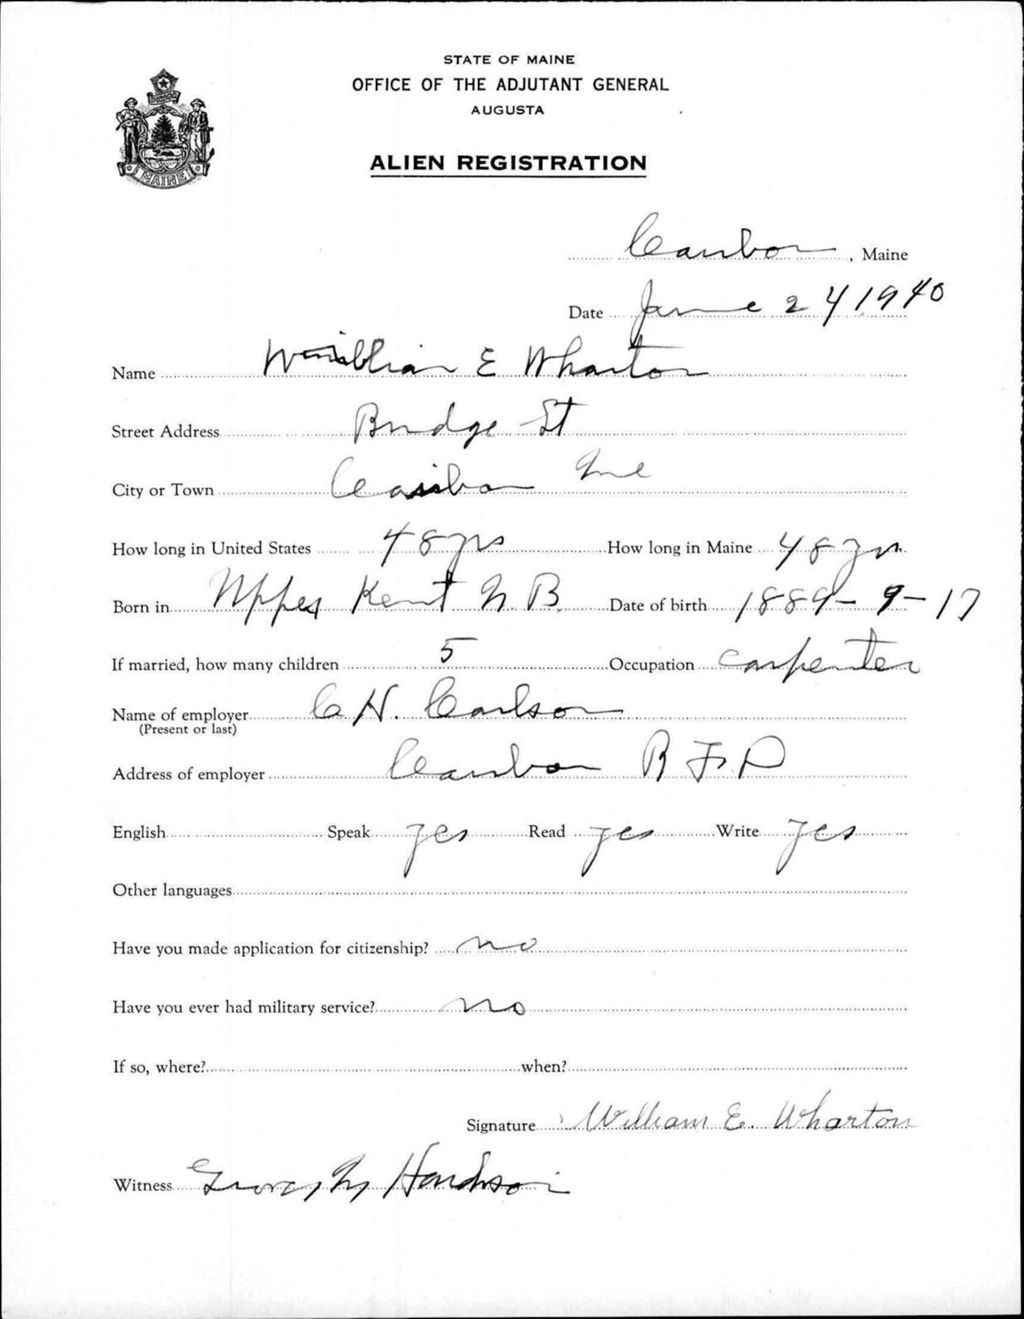 STATE OF MAINE
OFFICE OF THE ADJUTANT GENERAL
AUGUSTA
ALIEN REGISTRATION
MAINE
Caribou, Maine
Date June 24 1940
Name William E Wharton
Street Address Bridge St
City or Town Caribou Me
How long in United States 48 yrs How long in Maine 48 yrs
Born in Upper Kent N. B. Date of birth 1889-9-17
If married, how many children 5 Occupation carpenter
Name of employer C H. Carlson
(Present or last)
Address of employer Caribou R F D
English Speak yes Read yes Write yes
Other languages
Have you made application for citizenship? no
Have you ever had military service? no
If so, where? when?
Signature William E. Wharton
Witness